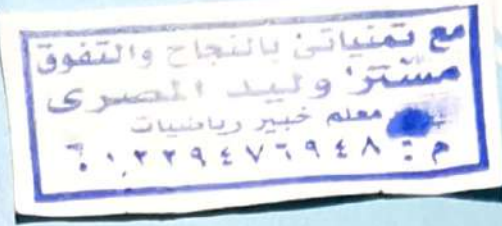 مع تمنياتى بالنجاح والتفوق
مستر/ وليد المصرى
معلم خبير رياضيات
م : ٠١٢٢٩٤٧٦٩٤٨